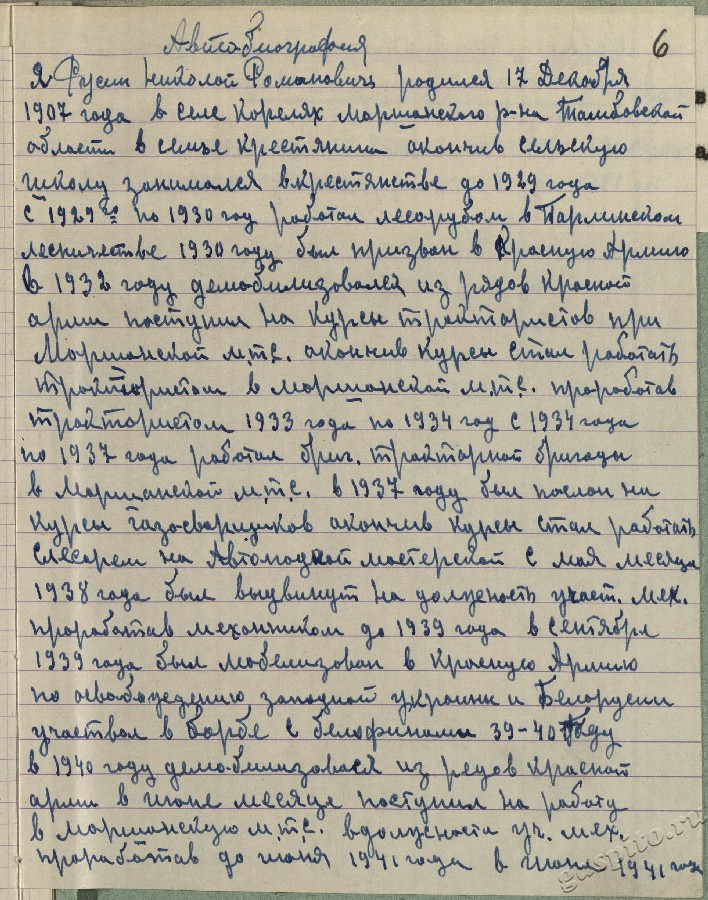 Автобиография
6
Я Фусин Николай Романович родился 17 Декабря
1907 года в селе Корелях Моршанского р-на Тамбовской
области в семье крестянина окончив сельскую
школу занимался в крестянстве до 1929 года
С 1929 го по 1930 год работал лесорубом в Парлинском
лесничестве 1930 году был призван в Красную Армию
в 1932 году демобилизовался из рядов Красной
арми поступил на курсы трактористов при
Моршанской м.т.с. окончив курсы стал работать
трактористом в моршанской м.т.с. проработав
трактористом 1933 года по 1934 год с 1934 года
по 1937 года работал бриг. тракторной бригады
в Моршанской м.т.с. в 1937 году был послан на
курсы газосварщиков окончив курсы стал работать
слесарем на мастерской с мая месяца
1938 года был выдвинут на должность участ. мех.
проработав механником до 1939 года в сентябре
1939 года был мобелизован в Красную Армию
по освобождению западной украины и Белорусии
участвал в борбе с белофинами 39-40 году
в 1940 году демобилизовася из редов Красной
арми в июне месяце поступил на работу
в моршанскую м.т.с. в должноста уч. мех.
проработав до июня 1941 года в июне 1941 года
gaspito.ru